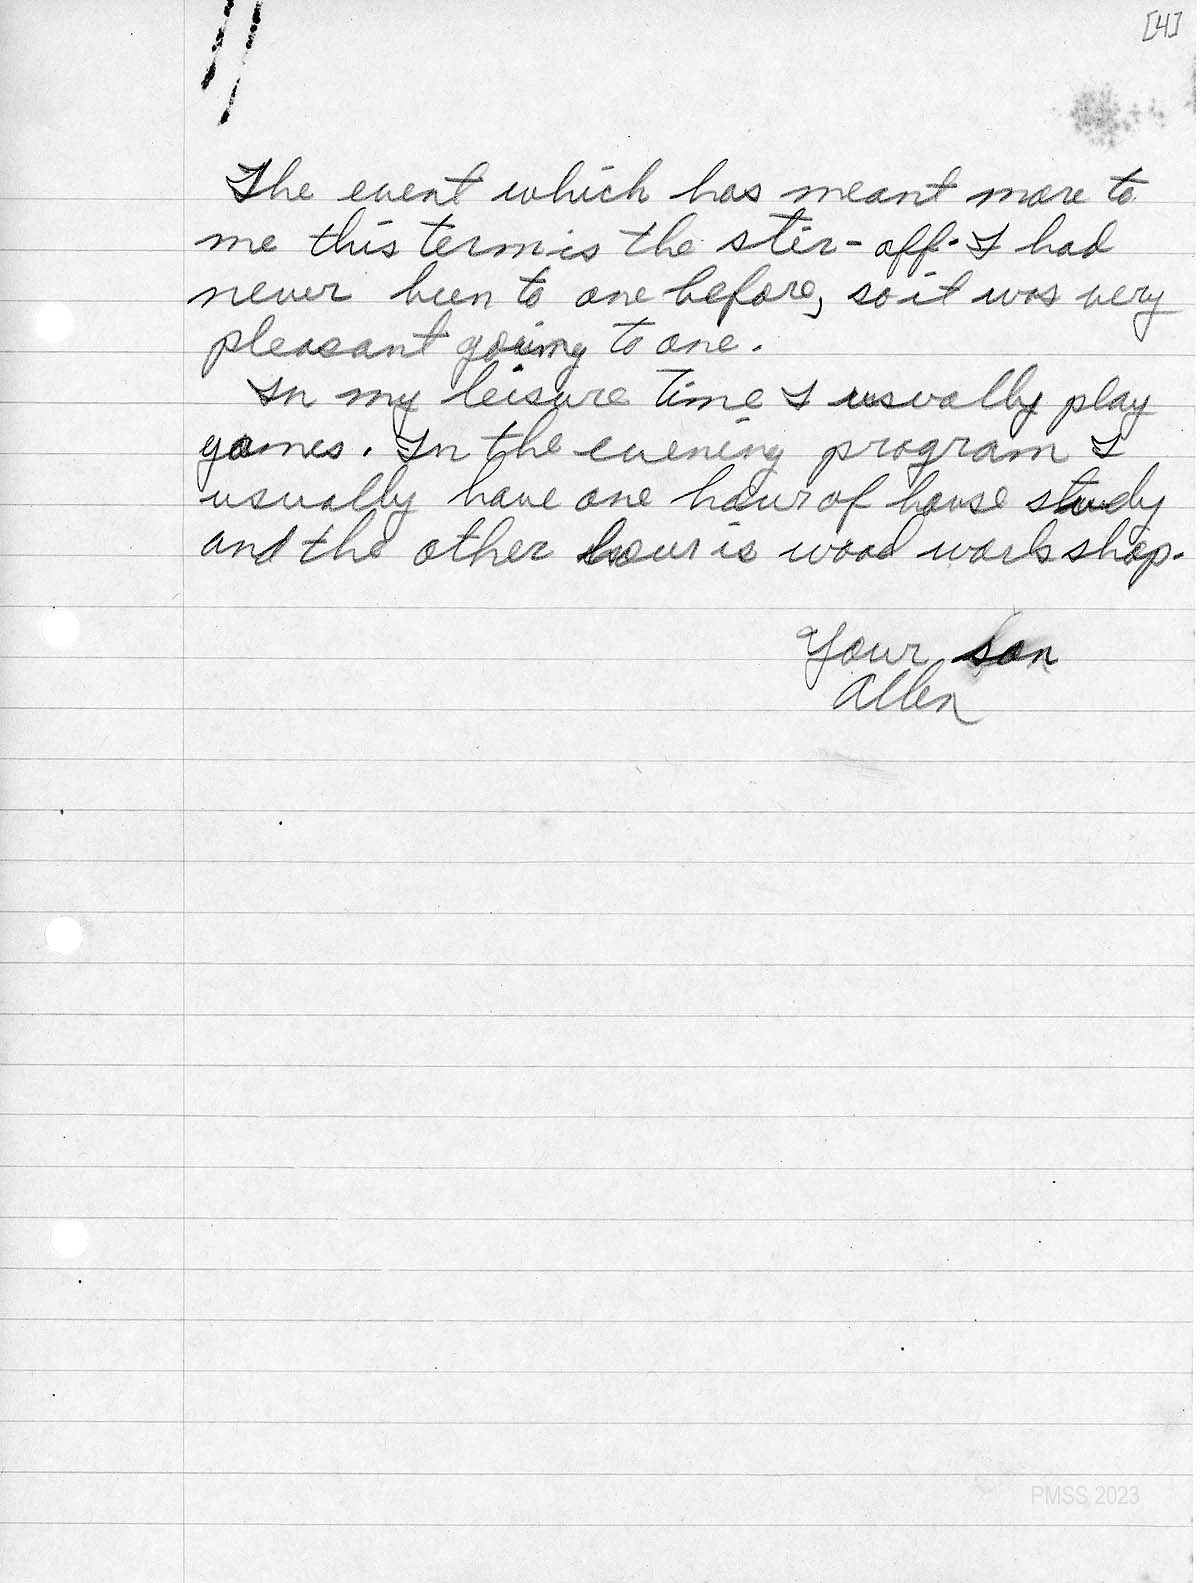 [4]
The event which has meant more to
me this term is the stir-off. I had
never been to one before, so it was very
pleasant going to one.
In my leisure time I usually play
games. In the evening program I
usually have one hour of house study
and the other hour is wood work shop.
Your son
Allen
PMSS 2023